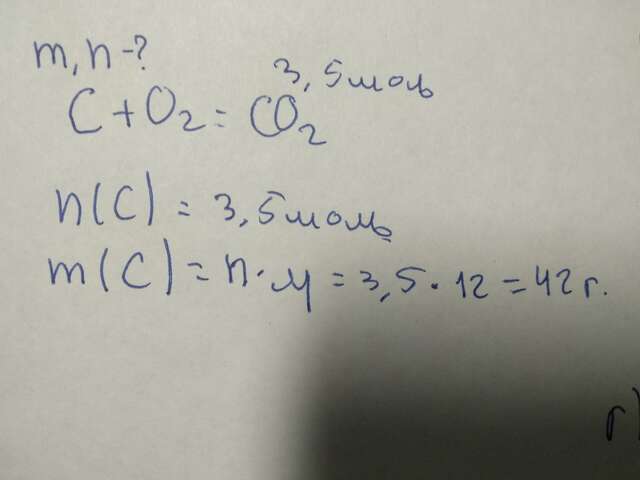 m, n-?
3,5моль
C+O₂=CO₂
n(C)=3,5моль
m(C)=n·M=3,5·12=42г.
г)